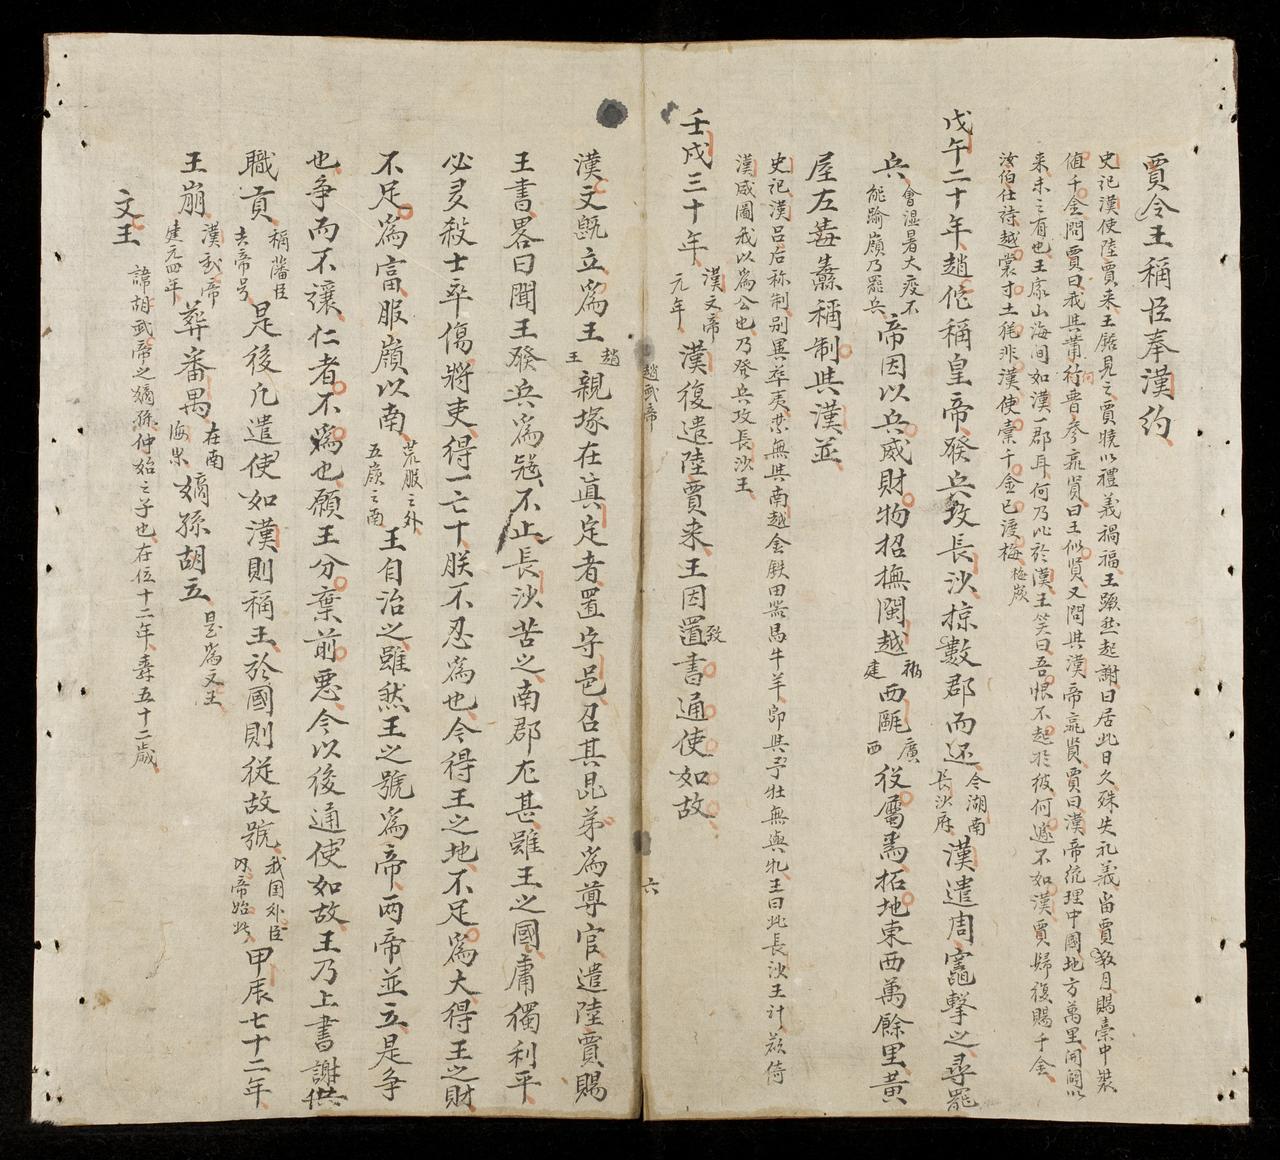 賈令王稱臣奉漢約
史記漢使陸賈来王踞見之賈曉以禮義禍福王蹶然起謝曰居此日久殊失礼義留賈数月賜橐中裝
値千金問賈曰我與蕭何曹參孰賢曰王似賢又問與漢帝孰賢賈曰漢帝統理中國地方萬里開闢以
来未之有也王處山海間如漢一郡耳何乃比於漢王笑曰吾恨不起於彼何遽不如漢賈歸復賜千金
汝伯仕詩越裳寸土終非漢使橐千金已渡梅 梅嶺
戊午二十年趙佗稱皇帝發兵攻長沙掠數郡而还 今湖南長沙府 漢遣周竈擊之尋罷
兵 會湿暑大疫不能踰嶺乃罷兵 帝因以兵威財物招撫閩越 福建 西甌 廣西 役屬焉拓地東西萬餘里黃
屋左纛稱制與漢並
史記漢呂后称制别異華夷禁無與南越金鉄田器馬牛羊卽與予牡無與牝王曰此長沙王計欲倚
漢威圖我以為公也乃發兵攻長沙王
壬戌三十年 漢文帝元年 漢復遣陸賈来王因置書通使如故
致
趙武帝
六
漢文既立為王 趙王 親塚在真定者置守邑召其昆弟為尊官遣陸賈賜
王書畧曰聞王發兵為㓂不止長沙苦之南郡尤甚雖王之國庸獨利乎
必多殺士卒傷將吏得一亡十朕不忍為也今得王之地不足為大得王之財
不足為富服嶺以南 荒服之外五嶺之南 王自治之雖然王之號為帝两帝並立是争
也争而不讓仁者不為也願王分棄前悪今以後通使如故王乃上書謝供
職貢 稱藩臣去帝号 是後凡遣使如漢則稱王於國則従故號 我国外臣內帝始此 甲辰七十二年
王崩 漢武帝建元四年 葬番禺 在南海県 嫡孫胡立 是為文王
文王 諱胡武帝之嫡孫仲始之子也在位十二年壽五十二歲